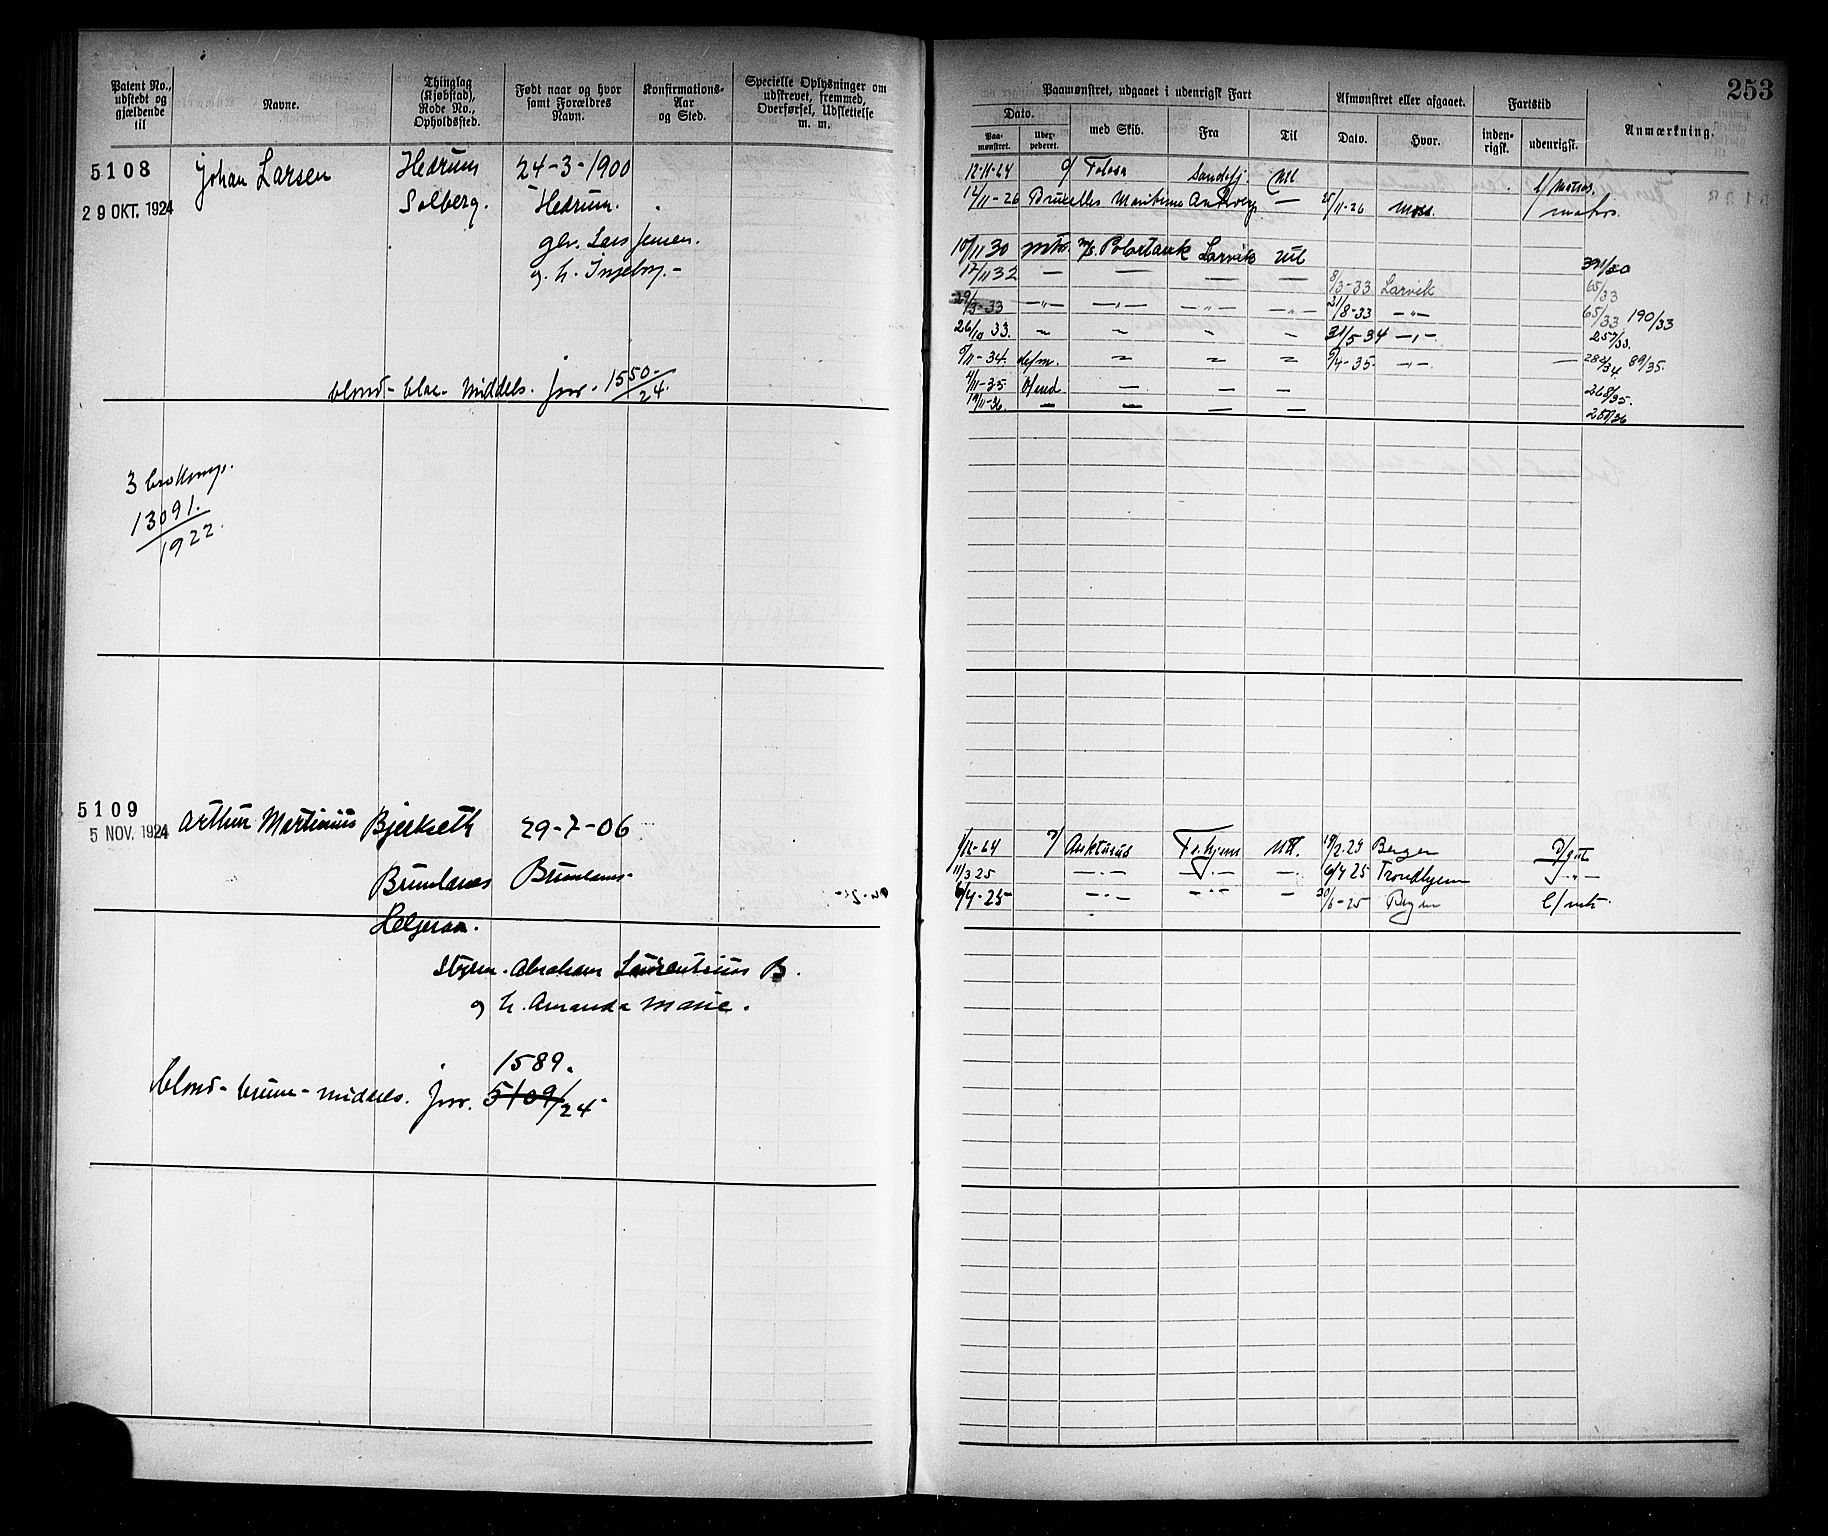 Patent No., udstedt og gjældende til
Navne.
Thinglag (Kjøbstad), Rode No., Opholdssted.
Født naar og hvor samt Forældres Navn.
Konfirmations-Aar og Sted.
Specielle Oplysninger om udskrevet, fremmed, Overførsel, Udslettelse m. m.
5108
29 OKT. 1924
Johan Larsen
Hedrum
Solberg.
24-3-1900
Hedrum.
Lars Jensen.
og h. Ingeborg.-
blond- blaa- middels. 1550-/24.
3
13091.
1922.
5109
5 NOV. 1924
Arthur Martinius Bjerkseth
29-7-06
Brunlanes
Brunlanes
Helgeroa.
Styrm. Abraham Laurentius B.
og h. Amanda Marie.
1589.
blond- brune- middels. 5109/24
253
Paamønstret, udgaaet i udenrigsk Fart
Afmønstret eller afgaaet.
Fartstid
Anmærkning.
Dato.
Paa-mønstret.
Uder-pederet.
med Skib.
Fra
Til
Dato.
Hvor.
inden-rigsk.
udenrigsk.
12-11-24 Tolosa Sandefj. Utl
12/11-26 Bruxelles Maritime Antwerp — 25/11-26 Moss. matros.
10/11 30 m/s. Polartank Larvik Utl 391/30
12/11 32 — — — — 8/3-33 Larvik 65/33
29/3-33 —"— —"— —"— —"— 31/8-33 —"— 65/33 190/33
26/10 33. 31/5-34 —"— 257/33.
5/11-34. 9/4-35. —"— — 282/34 89/35.
4/11-35 — — — 268/35.
19/11-36. — — — — 250/36
1/12-24 Utl. 19/2.25 Bergen
11/3 25 —"— —"— —"— 6/4 25 Trondhjem —"—
6/4-25 —"— —"— — 30/6-25 Bergen